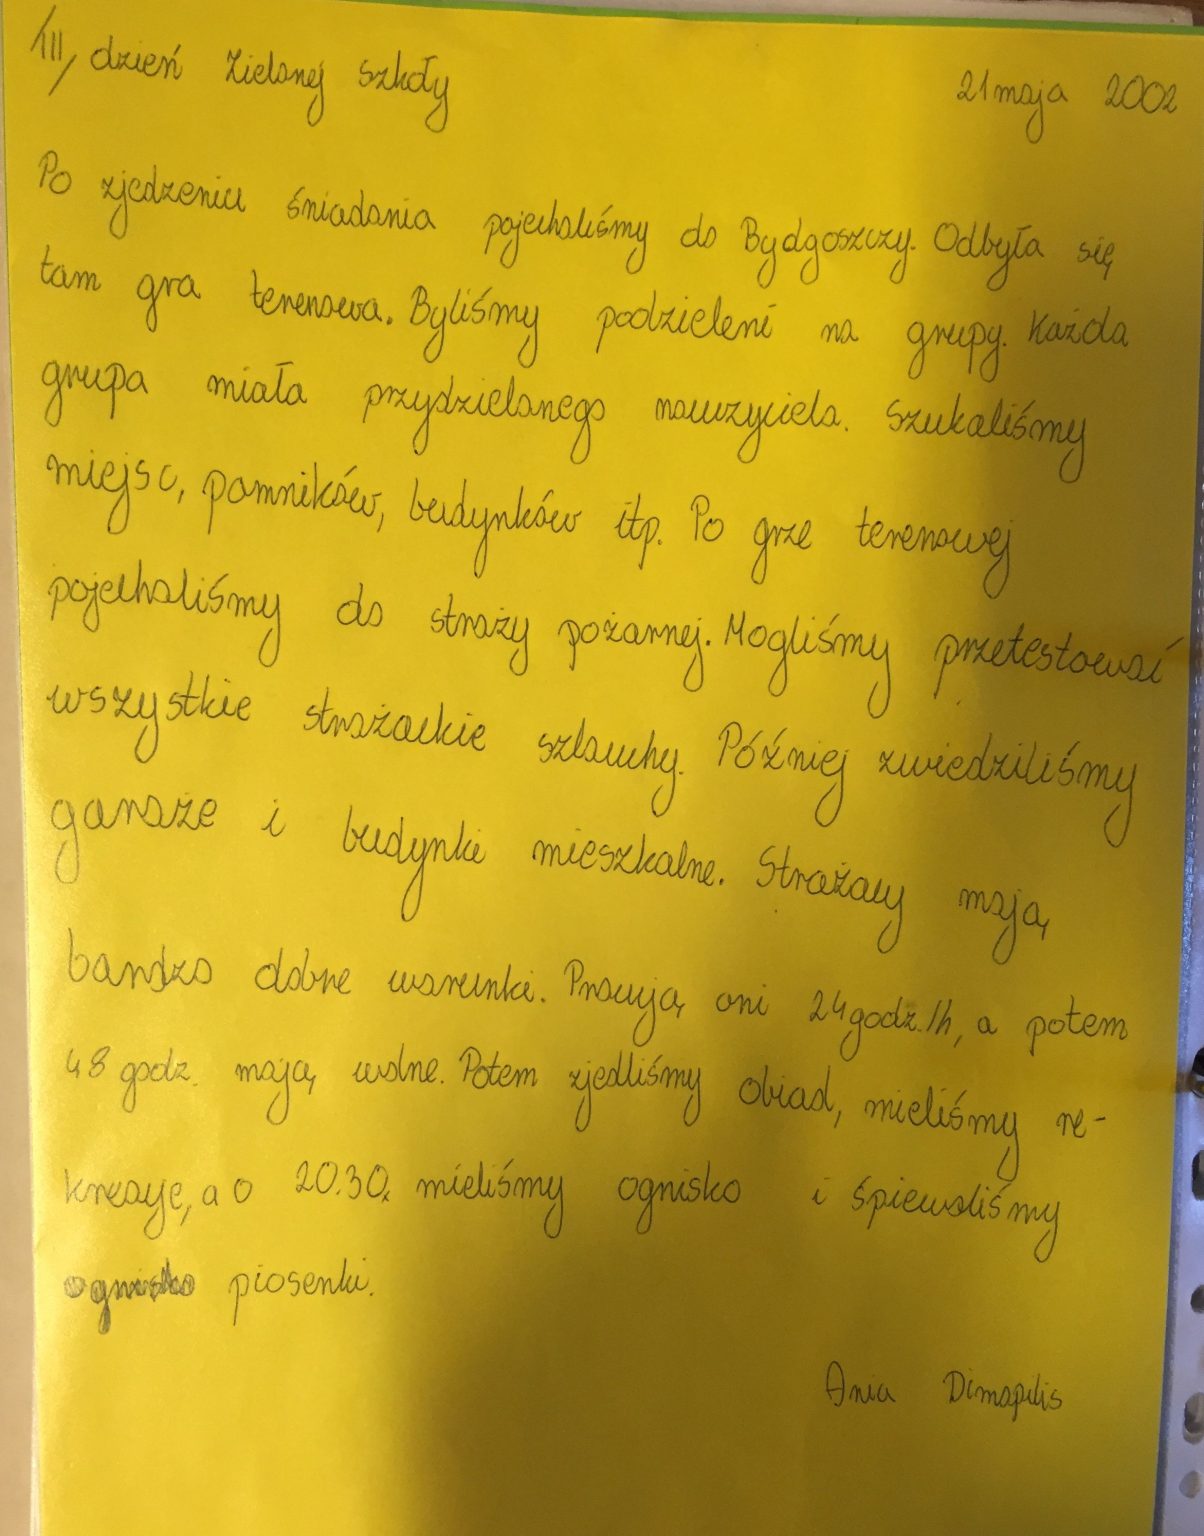 III dzień Zielonej Szkoły 21 maja 2002
Po zjedzeniu śniadania pojechaliśmy do Bydgoszczy. Odbyła się
tam gra terenowa. Byliśmy podzieleni na grupy. Każda
grupa miała przydzielonego nauczyciela. Szukaliśmy
miejsc, pomników, budynków itp. Po grze terenowej
pojechaliśmy do straży pożarnej. Mogliśmy przetestować
wszystkie strażackie szlauchy. Później zwiedziliśmy
garaże i budynki mieszkalne. Strażacy mają
bardzo dobre warunki. Pracują oni 24godz./h, a potem
48 godz. mają wolne. Potem zjedliśmy obiad, mieliśmy re-
kreację, a o 20.30. mieliśmy ognisko i śpiewaliśmy
ognisko piosenki.
Ania Dimapilis